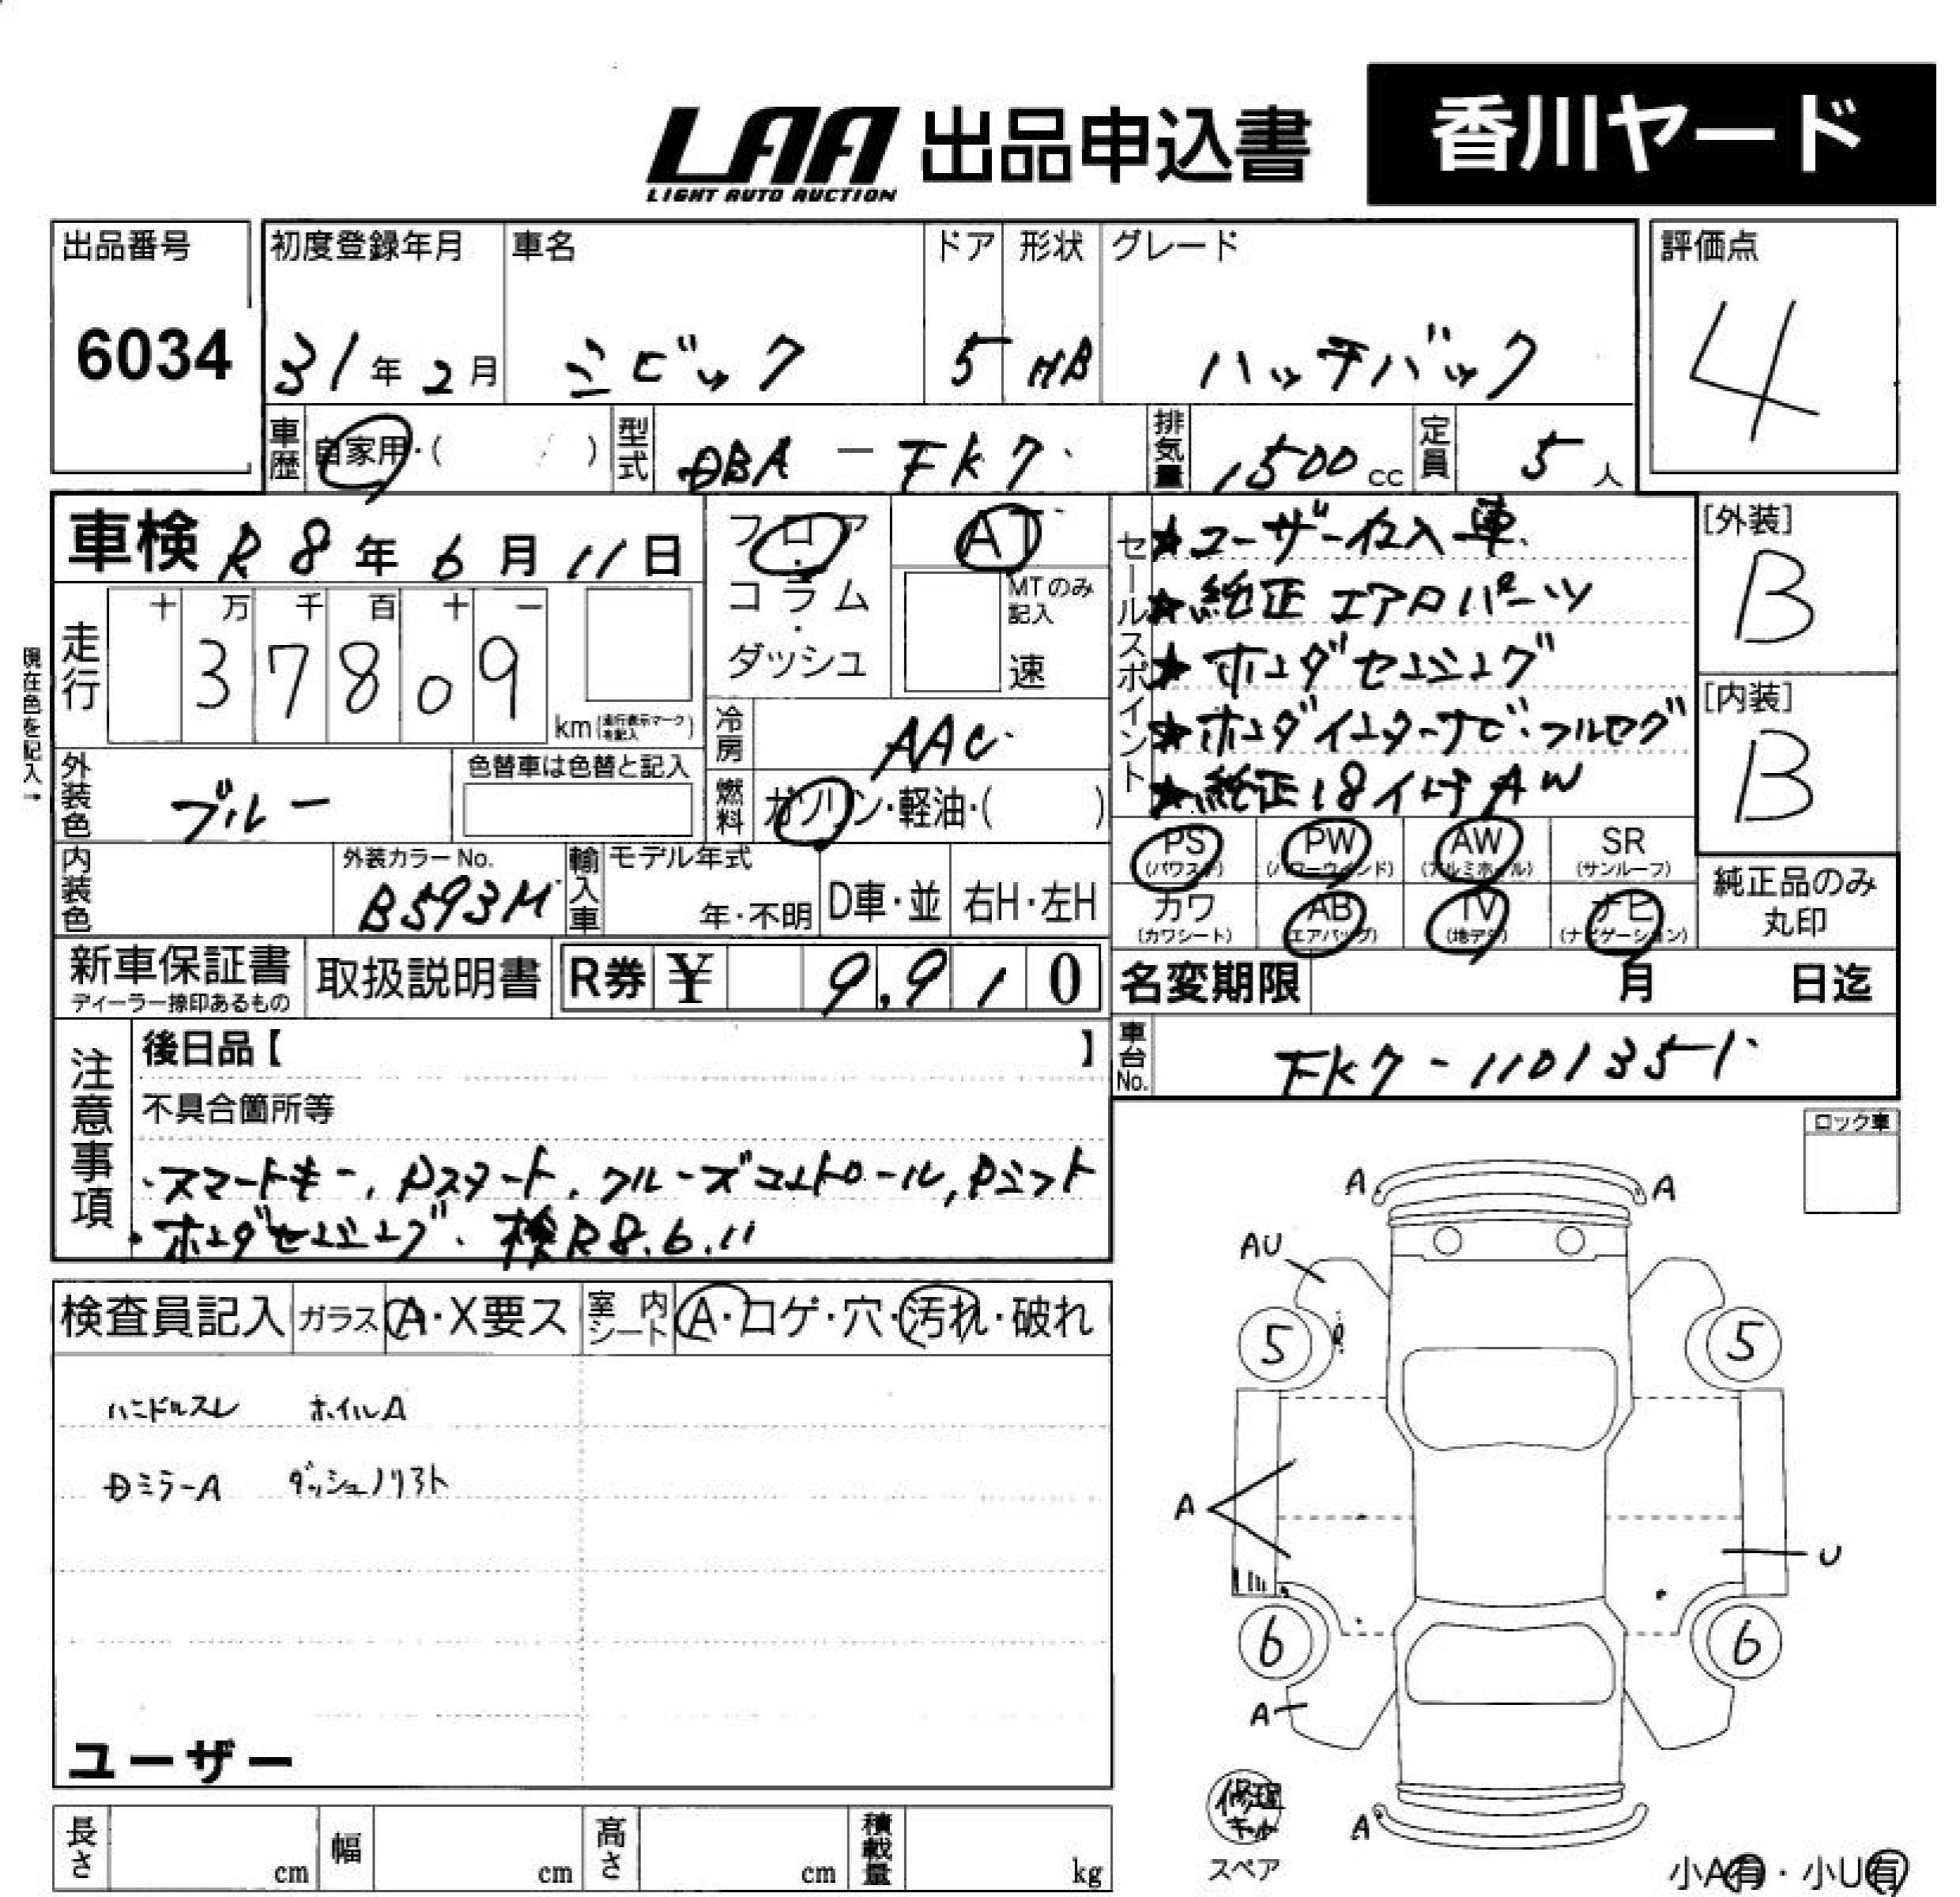 LAA 出品申込書 香川ヤード
LIGHT AUTO AUCTION
出品番号 初度登録年月 車名 ドア 形状 グレード 評価点
6034 31年2月 シビック 5 HB ハッチバック 4
車歴 自家用・( ) 型式 DBA-FK7 排気量 1500cc 定員 5人
車検 R8年6月11日
フロア・コラム・ダッシュ
AT
MTのみ記入
速
走行
十 万 千 百 十 一
37809
km(走行表示マークを記入)
現在色を記入→
冷房 AAC
外装色 ブルー
色替車は色替と記入
燃料 ガソリン・軽油・( )
内装色
外装カラーNo.
B593M
輸入車
モデル年式
年・不明 D車・並 右H・左H
セールスポイント
★ユーザー仕入車
★純正エアロパーツ
★ホンダセンシング
★ホンダインターナビ・フルセグ
★純正18インチAW
[外装]
B
[内装]
B
PS (パワステ) PW (パワーウインド) AW (アルミホイル) SR (サンルーフ)
カワ (カワシート) AB (エアバッグ) TV (地デジ) ナビ (ナビゲーション)
純正品のみ
丸印
新車保証書
ディーラー捺印あるもの
取扱説明書
R券 ¥ 9,910
名変期限 月 日迄
車台No. FK7-1101351
注意事項
後日品【 】
不具合箇所等
・スマートキー,Pスタート,クルーズコントロール,Pシフト
・ホンダセンシング、検R8.6.11
ロック車
検査員記入 ガラス A・X要ス 室内シート A・コゲ・穴・汚れ・破れ
ハンドルスレ ホイルA
Dミラー A ダッシュノリアト
ユーザー
A A
AU
5 5
A
U
6 6
A
A
修理キット
スペア
小A有・小U有
長さ cm 幅 cm 高さ cm 積載量 kg